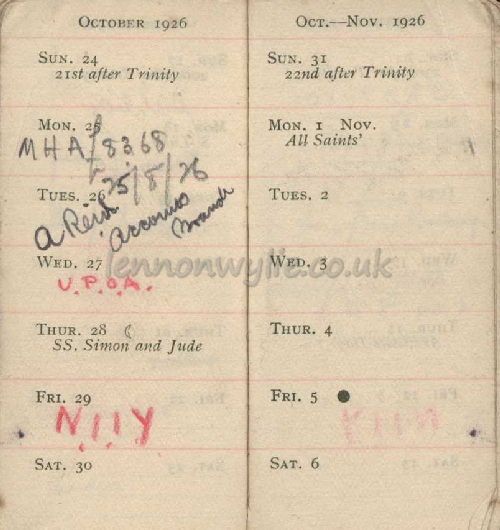 OCTOBER 1926
SUN. 24
21st after Trinity
MON. 25
MHA/8368
F 25/8/26
TUES. 26
A Reid
Accounts
Branch
WED. 27
U.P.O.A.
THUR. 28 ☾
SS. Simon and Jude
FRI. 29
SAT. 30
OCT.—NOV. 1926
SUN. 31
22nd after Trinity
MON. 1 NOV.
All Saints'
TUES. 2
WED. 3
THUR. 4
FRI. 5 ●
SAT. 6
lennonwylie.co.uk